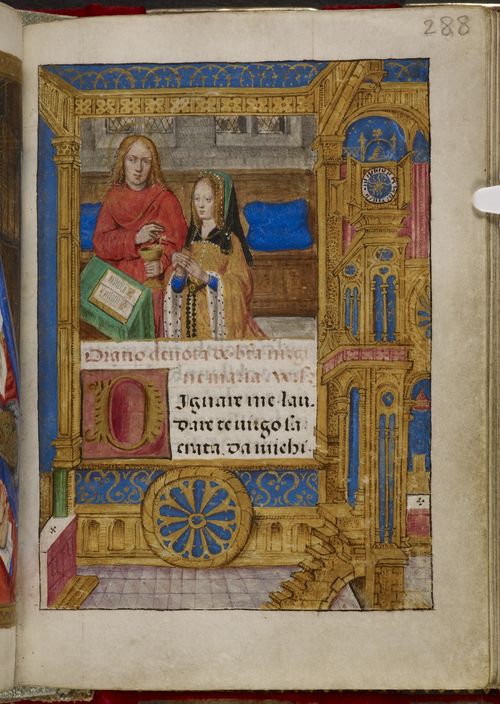 288
Oratio devota de bta virgi
ne maria. versꝫ
Dignare me lau.
dare te virgo sa:
crata. Da michi.